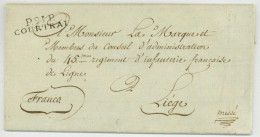 P.91.P.
COURTRAI
A Monsieur La Marque et
Membres du Conseil d'administration
du 45eme regiment d'infanterie française
de Ligne
à
Franco
Liège